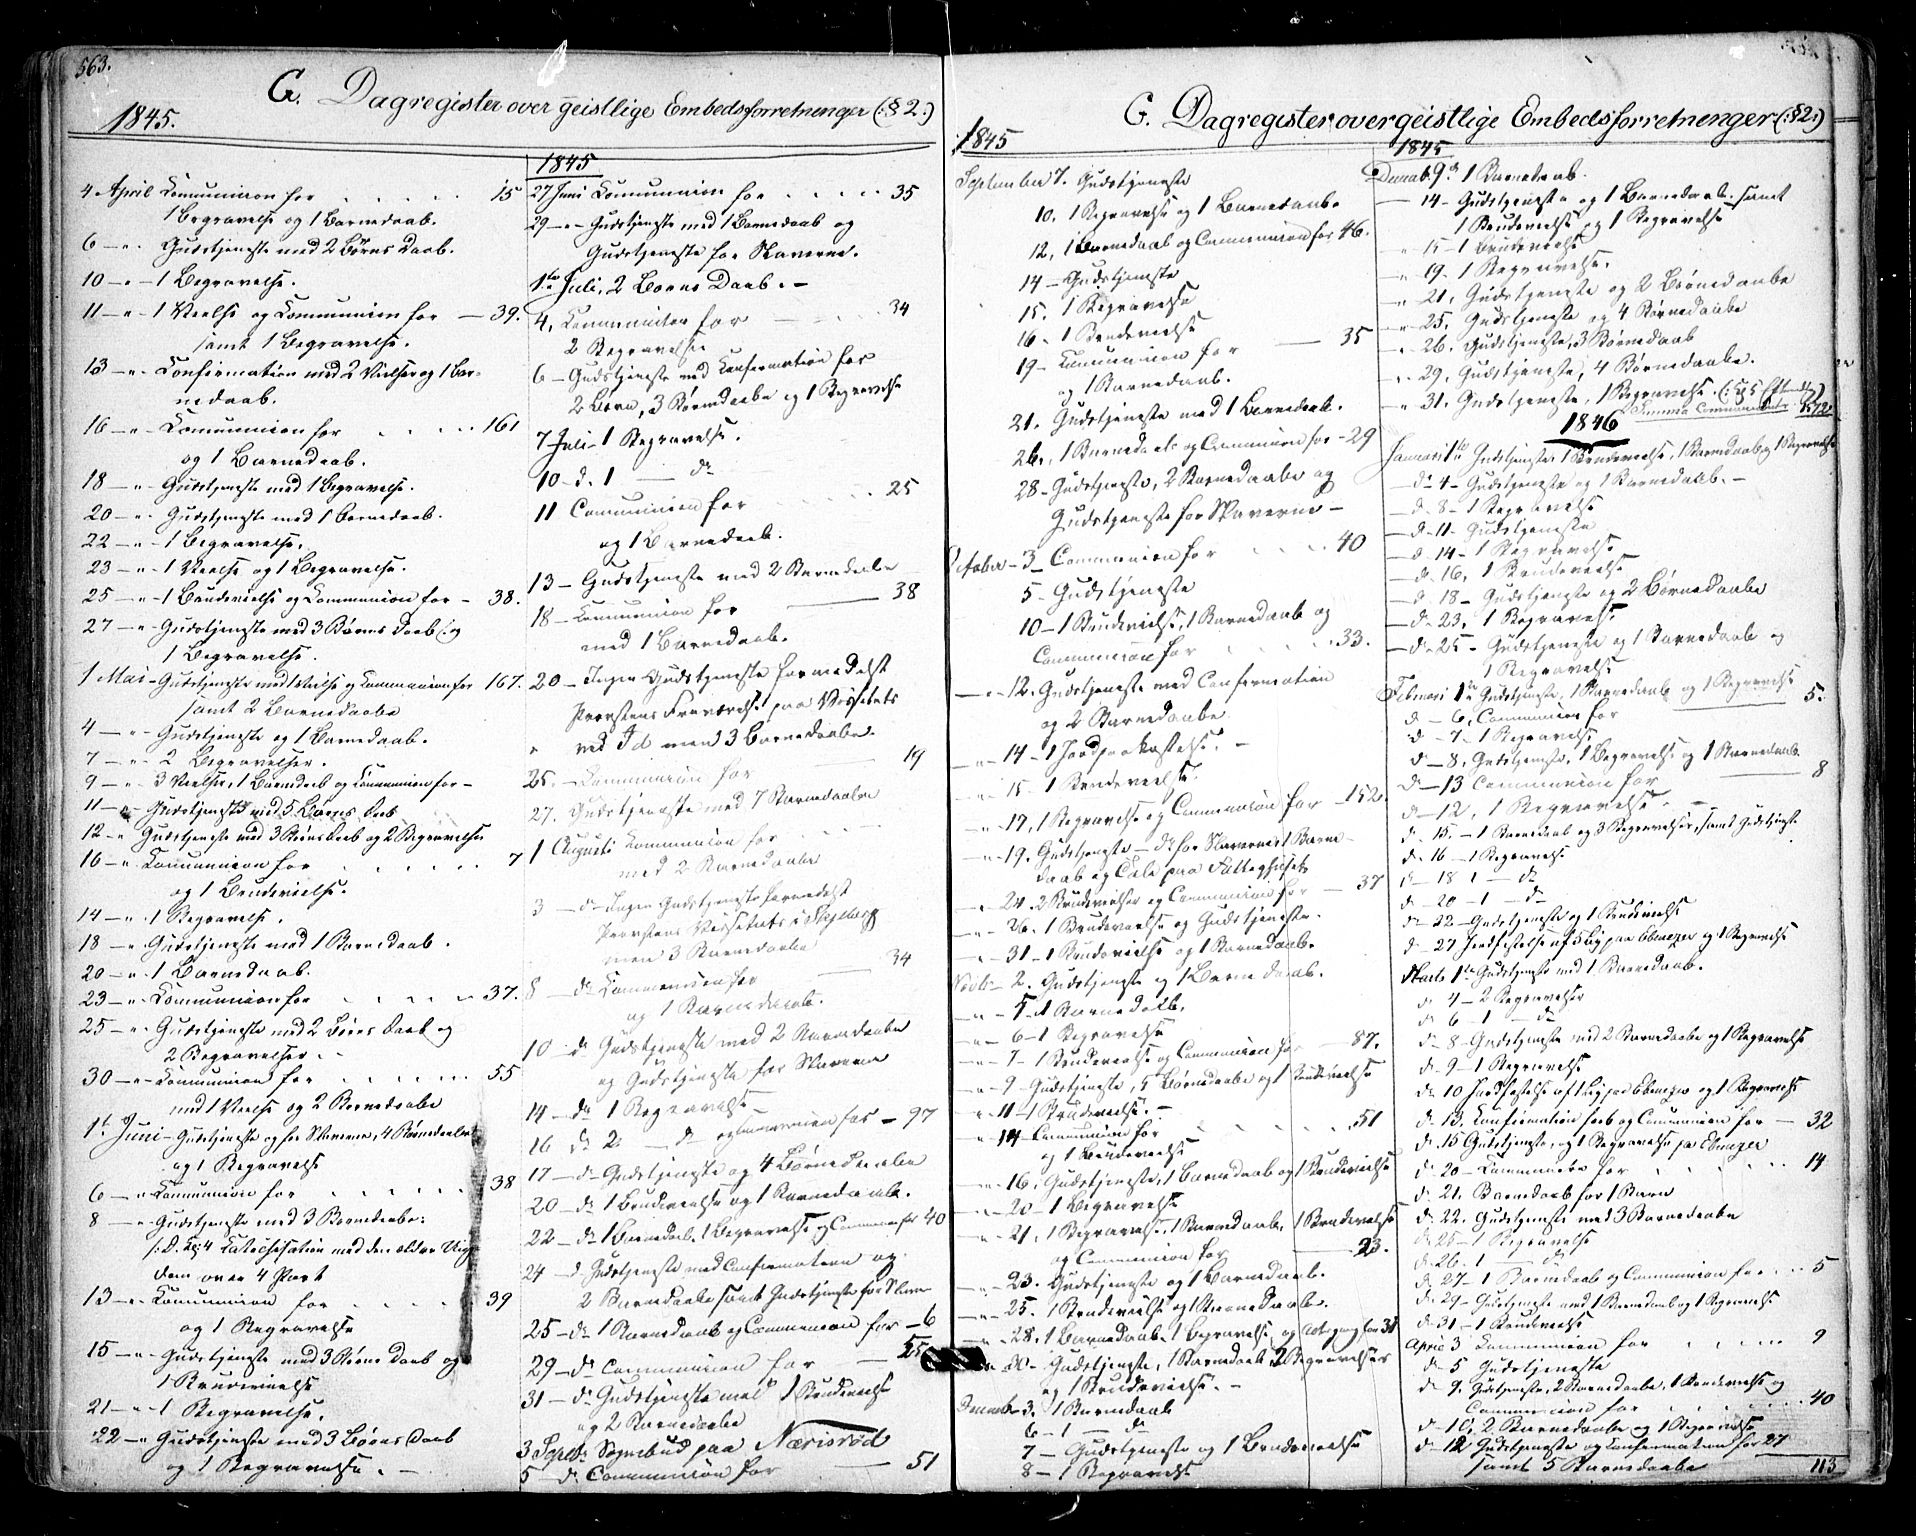 563.
G. Dagregister over geistlige Embedsforretninger (:§2:)
1845.
4 April Comunnion for . . . . 15
1 Begravelse og 1 Barnedaab.
6 —"— Gudstjeneste med 2 Børns Daab.
10 —"— 1 Begravelse.
11 —"— 1 Vielse og Communion for — 39.
samt 1 Begravelse.
13 —"— Confirmation med 2 Vielser og 1 Bar-
nedaab.
16 —"— Communion for . . . . 161
og 1 Barnedaab.
18 —"— Gudstjeneste med 1 Begravelse.
20 —"— Gudstjeneste med 1 Barnedaab.
22 —"— 1 Begravelse.
23 —"— 1 Vielse og 1 Begravelse.
25 —"— 1 Brudevielse og Communion for — 38.
27 —"— Gudstjeneste med 3 Børns Daab og
1 Begravelse.
1 Mai — Gudstjeneste med 1 Vielse og Communion for 167.
samt 2 Barnedaabe
4 —"— Gudstjeneste og 1 Barnedaab.
7 —"— 2 Begravelser.
9 —"— 3 Vielser, 1 Barnedaab og Communion for —
11 —"— Gudstjeneste med 5 Børns Daab
12 —"— Gudstjeneste med 3 Børns Daab og 2 Begravelser
16 —"— Communion for . . . . 7
og 1 Brudevielse.
14 —"— 1 Begravelse.
18 —"— Gudstjeneste med 1 Barnedaab.
20 —"— 1 Barnedaab.
23 —"— Communion for . . . . 37.
25 —"— Gudstjeneste med 2 Børns Daab og
2 Begravelser.
30 —"— Communion for . . . . 55
med 1 Vielse og 2 Barnedaabe
1t Juni — Gudstjeneste og for Slaverne, 4 Barnedaabe
og 1 Begravelse
6 —"— Communion for . . . . 38
8 —"— Gudstjeneste med 3 Barnedaabe:
Catechisation med den ældre Ung-
dom over 4 Part
13 —"— Communion for . . . . 39
og 1 Begravelse
15 —"— Gudstjeneste med 3 Børns Daab og
1 Brudevielse
21 —"— 1 Begravelse.
22 —"— Gudstjeneste med 3 Børns Daab
og 1 Begravelse. —
1845
27 Juni Communion for . . . . 35
29 —"— Gudstjeneste med 1 Barnedaab og
Gudstjeneste for Slaverne.
1te Juli, 2 Børns Daab. —
4, Communion for — 34
2 Begravelser
6 — Gudstjeneste med Confirmation for
2 Børn, 3 Børnedaabe og 1 Begravelse
7 Juli — 1 Begravelse.
10 — d. 1 — do
11 Communion for . . . . 25
og 1 Barnedaab.
13 — Gudstjeneste med 2 Barnedaabe
18 — Communion for — 38
med 1 Barnedaab.
20 — Ingen Gudstjeneste formedelst
Provstens Fraværelse paa Visitats
" ved Id men 3 Barnedaabe.
25. — Communion for — 19
27. Gudstjeneste med 7 Barnedaabe
1 Augusti Communion for
med 2 Barnedaabe
3 — do Ingen Gudstjeneste formedelst
Provstens Visitats i Skjeberg
men 3 Barnedaabe
8 — do Communion for — 34
og 1 Barnedaab.
10 — do Gudstjeneste med 2 Barnedaabe
og Gudstjeneste for Slaverne
14 — do 1 Begravelse
16 do 2 — do og Communion for — 97
17 — do Gudstjeneste og 4 Børnedaabe
20 — do 1 Brudevielse og 1 Barnedaab.
22 — do 1 Barnedaab, 1 Begravelse og Communion for 40
24 — d Gudstjeneste med Confirmation og
2 Barnedaabe samt Gudstjeneste for Slaver
25 — do 1 Barnedaab og Communion for — 6
29 — do Communion for — 25
31 — do Gudstjeneste med 1 Brudevielse
og 2 Barnedaabe
3 Septb. Sognebud paa Nærisrød
5 — do Communion for — 51
G. Dagregister over geistlige Embedsforretninger (:§2:)
1845
September 7. Gudstjeneste
10. 1 Begravelse og 1 Barnedaab.
12, 1 Barnedaab og Communion for 46.
14 — Gudstjeneste
15. 1 Begravelse
16 — 1 Brudevielse
19 — Communion for — 35
og 1 Barnedaab.
21. Gudstjeneste med 1 Barnedaab.
26. 1 Barnedaab og Communion for — 29
28 — Gudstjeneste, 2 Barnedaabe og
Gudstjeneste for Slaverne —
October — 3 — Communion for . . . . 40
5 — Gudstjeneste
10 — 1 Brudevielse, 1 Barnedaab og
Communion for . . . . 33.
—"— 12. Gudstjeneste med Confirmation
og 2 Barnedaabe
—"— 14 — 1 Jordpaakastelse. —
—"— 15 — 1 Brudevielse.
—"— 17, 1 Begravelse og Communion for — 152.
—"— 19. Gudstjeneste — do for Slaverne 1 Barne-
daab og Tale paa Fattighuset
—"— 24. 2 Brudevielser og Communion for — 37
—"— 26. 1 Brudevielse og Gudstjeneste.
—"— 31 — 1 Brudevielse og 1 Barnedaab.
Novb. — 2. Gudstjeneste og 1 Barnedaab.
—"— 5 — 1 Barnedaab.
—"— 6 — 1 Begravelse
—"— 7 — 1 Brudevielse og Communion for — 87.
—"— 9 — Gudstjeneste, 4 Børnedaabe og 1 Brudevielse
—"— 11 — 1 Brudevielse. —
—"— 14 — Communion for . . . . 51
og 1 Brudevielse
—"— 16. Gudstjeneste, 1 Barnedaab og 1 Brudevielse
—"— 20 — 1 Begravelse
—"— 21, 1 Begravelse, 1 Barnedaab, 1 Brudevielse
og Communion for — 23.
—"— 23. Gudstjeneste og 1 Barnedaab.
—"— 25. 1 Brudevielse og 1 Barnedaab.
—"— 28, 1 Barnedaab, 1 Begravelse og for 31
30 — Gudstjeneste, 1 Barnedaab 2 Begravelser
og 1 Brudevielse. —
Decemb. 3. 1 Barnedaab
6 — 1 — do
7 — Gudstjeneste og 1 Brudevielse
8 — 1 Begravelse
1845
Decemb. 9d 1 Barnedaab.
— 14 — Gudstjeneste og 1 Barnedaab samt
1 Brudevielse og 1 Begravelse
—"— 15 — 1 Brudevielse
—"— 19. 1 Begravelse.
—"— 21. Gudstjeneste og 2 Børnedaabe
—"— 25. Gudstjeneste og 4 Børnedaabe
—"— 26. Gudstjeneste, 3 Børnedaab
—"— 29, Gudstjeneste, 4 Børnedaabe.
—"— 31. Gudstjeneste, 1 Begravelse.
Summa Communicanter 1572.
1846
Januari 1te Gudstjeneste, 1 Brudevielse, 1 Barnedaab og 1 Begravelse
— do 4 — Gudstjeneste og 1 Barnedaab. —
— d. 8 — 1 Begravelse
— d. 11 — Gudstjeneste
— d. 14 — 1 Begravelse
— d. 16, 1 Brudevielse
— d. 18 — Gudstjeneste og 2 Børnedaabe
— d. 23, 1 Begravelse
— d. 25 — Gudstjeneste og 1 Barnedaab og
1 Begravelse
Februari 1te Gudstjeneste, 1 Barnedaab og 1 Begravelse
d — 6, Communion for — 5.
d — 7 — 1 Begravelse
d — 8, Gudstjeneste, 1 Begravelse og 1 Barnedaab
d — 13 Communion for — 8
d — 12, 1 Begravelse. —
d. 15. — 1 Barnedaab og 3 Begravelser, samt Gudstjeneste
d. 16 — 1 Begravelse
d — 18 1 — do
d. — 20 — 1 — do
d. — 22 — Gudstjeneste og 1 Brudevielse
d. 27 Jordfæstelse af 5 Lig paa Ebenezer og 1 Begravelse
Marts 1te Gudstjeneste med 1 Barnedaab.
d. 4 — 2 Begravelser
d. 6 — 1 — do
d. 8 — Gudstjeneste med 2 Barnedaabe og 1 Begravelse
d. 9 — 1 Begravelse
d. 10 Jordfæstelse af 1 Lig paa Ebenezer og 1 Begravelse
d. 13. Confirmation og Communion for — 32
d. 15 Gudstjeneste, og 1 Begravelse paa Ebenezer
d. 20 — Communion for . . . . 14
d. 21. Barnedaab for 1 Barn
d. 22. Gudstjeneste med 3 Barnedaabe
d. 25 — 1 Begravelse
d. 26 — 1 — do
d. 27 — 1 Barnedaab og Communion for . . 5
d. 29 — Gudstjeneste med 1 Barnedaab og 1 Begravelse
d. 31 — 1 Brudevielse
April 3 Communion for . . . . 9
d. 5 Gudstjeneste
d — 9. Gudstjeneste, 2 Barnedaabe, 1 Brudevielse og
Communion for . . . . 40
d — 10, 2 Barnedaabe og 1 Begravelse
d — 12 Gudstjeneste og Confirmation for 27
samt 5 Barnedaabe
113